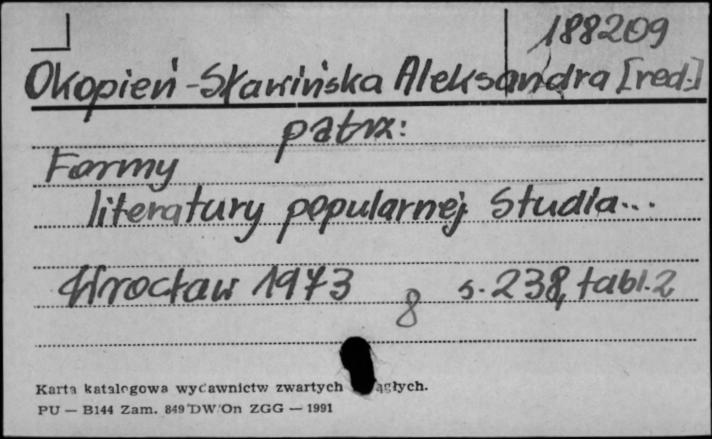 188209
Okopień-Sławińska Aleksandra [red.]
patrz:
Formy
literatury popularnej. Studia...
Wrocław 1973 8 s. 238, tabl. 2
Karta katalogowa wydawnictw zwartych ciągłych.
PU — B144 Zam. 849 DW/On ZGG — 1991